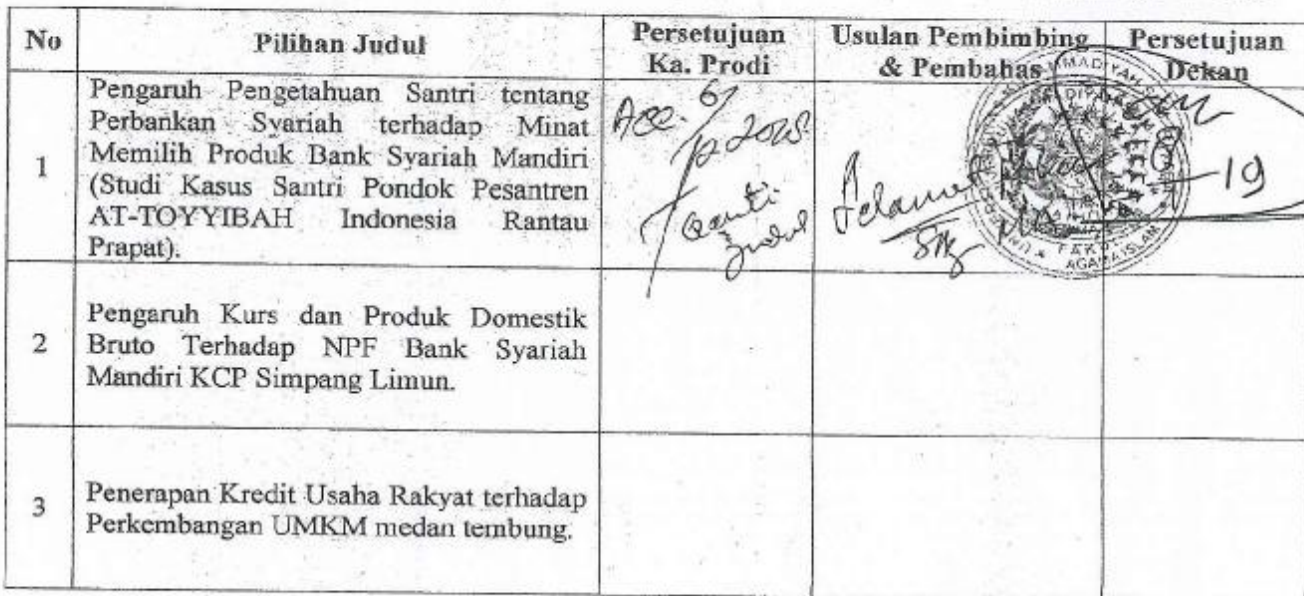 No
Pilihan Judul
Persetujuan
Ka. Prodi
Usulan Pembimbing
& Pembahas
Persetujuan
Dekan
1
Pengaruh Pengetahuan Santri tentang
Perbankan Syariah terhadap Minat
Memilih Produk Bank Syariah Mandiri
(Studi Kasus Santri Pondok Pesantren
AT-TOYYIBAH Indonesia Rantau
Prapat).
Acc.
Ganti
judul
19
FAK
AGAMA ISLAM
2
Pengaruh Kurs dan Produk Domestik
Bruto Terhadap NPF Bank Syariah
Mandiri KCP Simpang Limun.
3
Penerapan Kredit Usaha Rakyat terhadap
Perkembangan UMKM medan tembung.